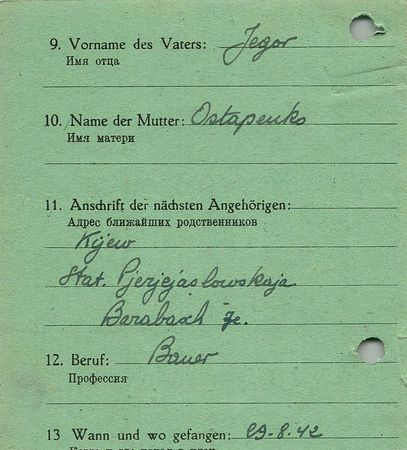 9. Vorname des Vaters: Jegor
Имя отца
10. Name der Mutter: Ostapenko
Имя матери
11. Anschrift der nächsten Angehörigen:
Адрес ближайших родственников
Kijew
Stat. Pjerjejaslowskaja
Barabasch Je.
12. Beruf: Bauer
Профессия
13 Wann und wo gefangen: 29.8.42